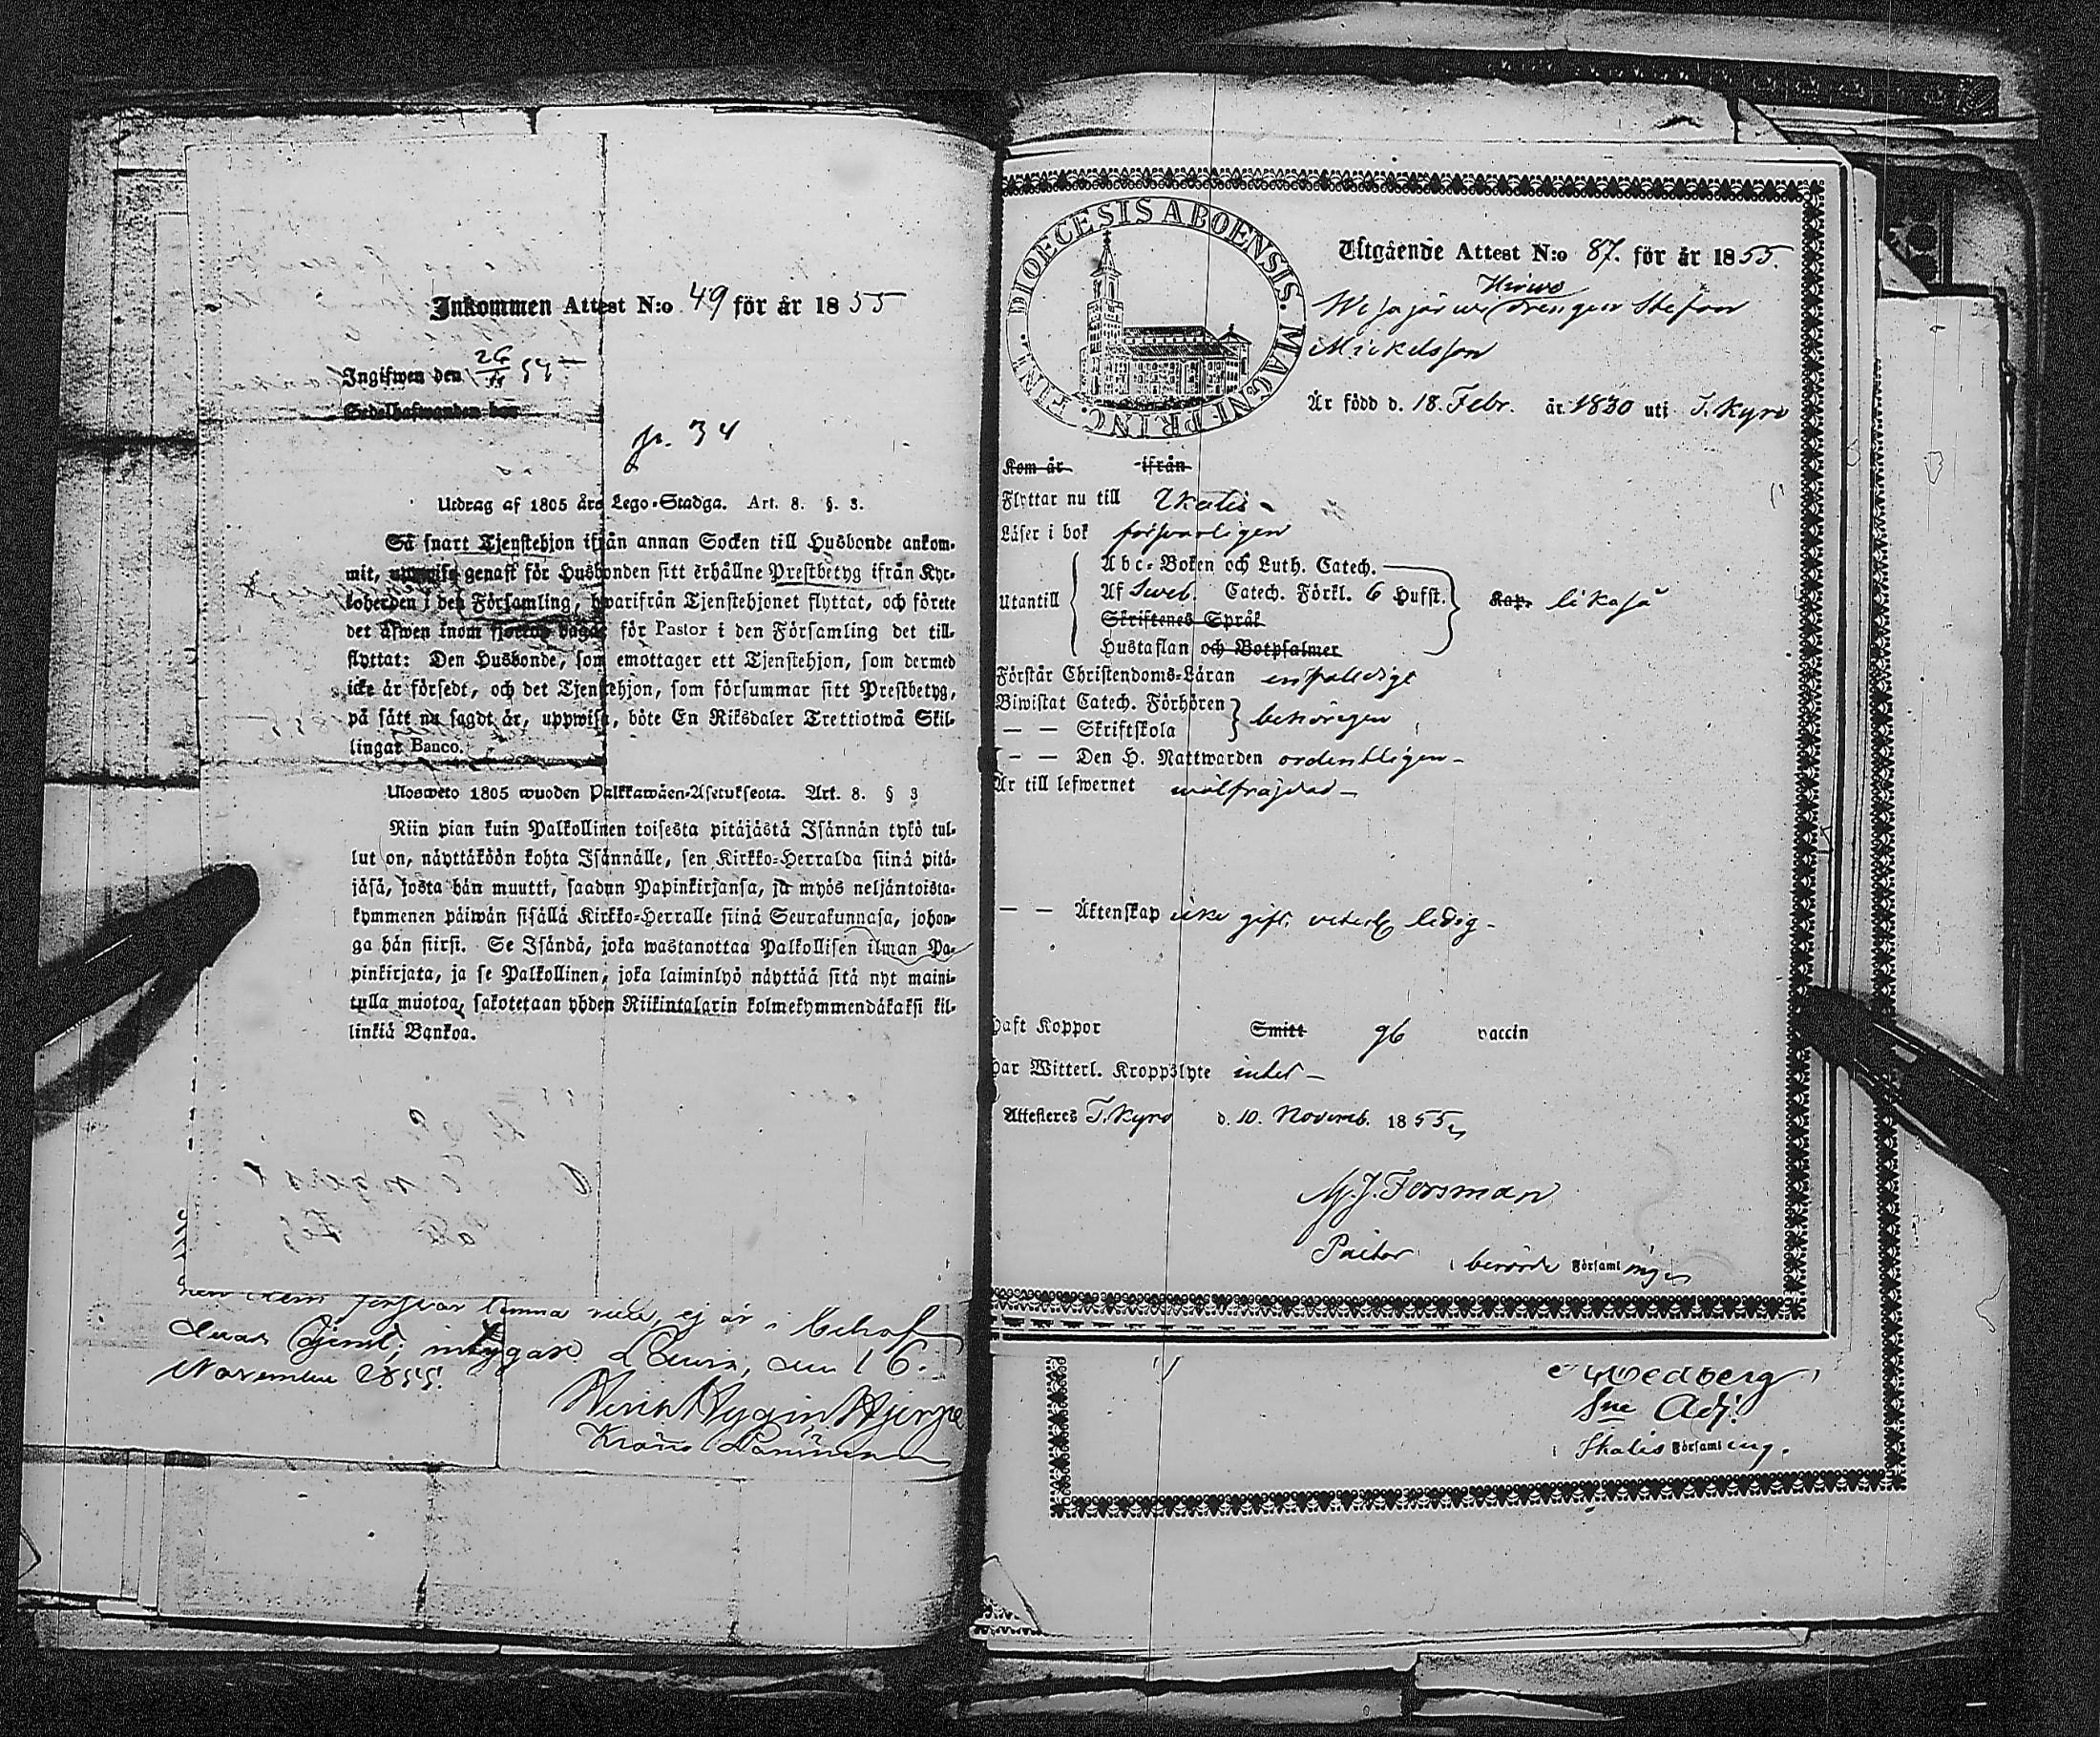 Inkommen Attest N:o 49 för år 1855
Ingifwen den 26/11 55
Sedelhafwanden bor
p. 34
Utdrag af 1805 års Lego-Stadga. Art. 8. §. 3.
Så snart Tjenstehjon ifrån annan Socken till Husbonde ankom-
mit, uppwise genast för Husbonden sitt erhållne Prestbetyg ifrån Kyr-
koherden i den Församling, hwarifrån Tjenstehjonet flyttat, och förete
det äfwen inom fjorton dagar för Pastor i den Församling det till-
flyttat: Den Husbonde, som emottager ett Tjenstehjon, som dermed
icke är försedt, och det Tjenstehjon, som försummar sitt Prestbetyg,
på sätt nu sagdt är, uppwisa, böte En Riksdaler Trettiotwå Skil-
lingar Banco.
Ulosweto 1805 wuoden Palkkawäen-Asetuksesta. Art. 8. § 3
Niin pian kuin Palkollinen toisesta pitäjästä Isännän tykö tul-
lut on, näyttäköön kohta Isännälle, sen Kirkko-Herralda siinä pitä-
jäsä, josta hän muutti, saadun Papinkirjansa, ja myös neljäntoista-
kymmenen päiwän sisällä Kirkko-Herralle siinä Seurakunnasa, johon-
ga hän siirsi. Se Isändä, joka wastanottaa Palkollisen ilman Pa-
pinkirjata, ja se Palkollinen, joka laiminlyö näyttää sitä nyt maini-
tulla muotoa, sakotetaan yhden Riikintalarin kolmekymmendäkaksi kil-
linkiä Bankoa.
försvar lemna ej är i behof
deras tjenst; intygar. Lawia, den 16.
November 1855.
DIOECESIS ABOENSIS. MAGNI PRINC. FINL.
Utgående Attest N:o 87. för år 1855.
Hirwo
Wesajärwi drengen Stefan
Mickelsson
Är född d. 18. Febr. år 1830 uti T. Kyro
Kom år ifrån
Flyttar nu till Ikalis
Läser i bok försvarligen
Utantill
Abc-Boken och Luth. Catech.
Af Sweb. Catech. Förkl. 6 Hufst. Kap. likaså
Skriftenes Språk
Hustaflan och Botpsalmer
Förstår Christendoms-Läran enfaldigt
Biwistat Catech. Förhören
— — Skriftskola behörigen
— — Den H. Nattwarden ordentligen
Är till lefwernet wälfrejdad
— — Äktenskap icke gift, veterl. ledig
haft Koppor Smitt gb vaccin
har Witterl. Kroppslyte intet
Attesteres T. Kyro d. 10. Novemb. 1855
M. J. Forsman
Pastor i berörde Församlingen
Wedberg
Sne Adj.
i Ikalis Församling.